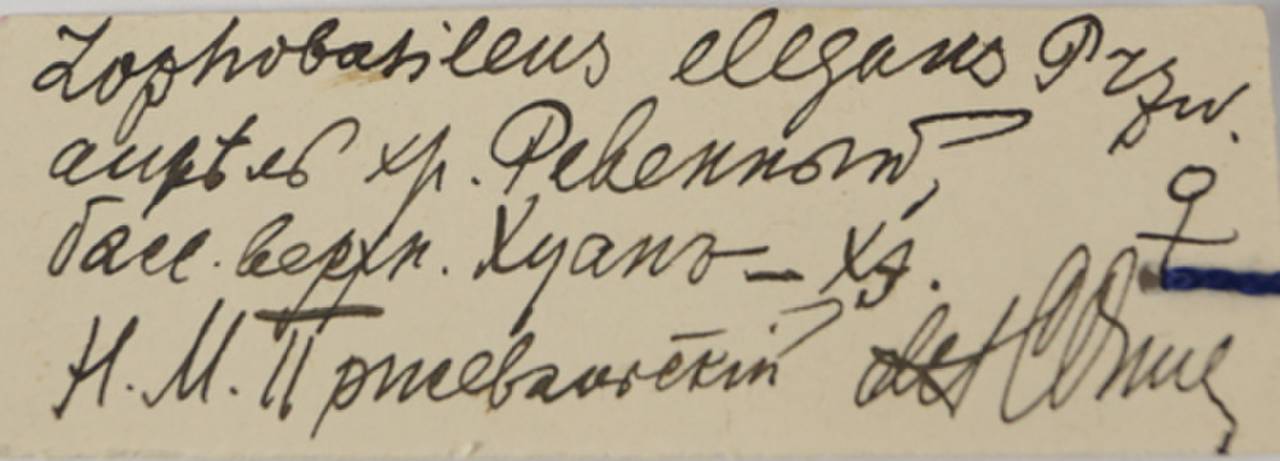 Lophobasileus elegans Przw.
апрѣль хр. Ревенный, ♀
басс. верхн. Хуанъ-Хэ.
Н. М. Пржевальскій det